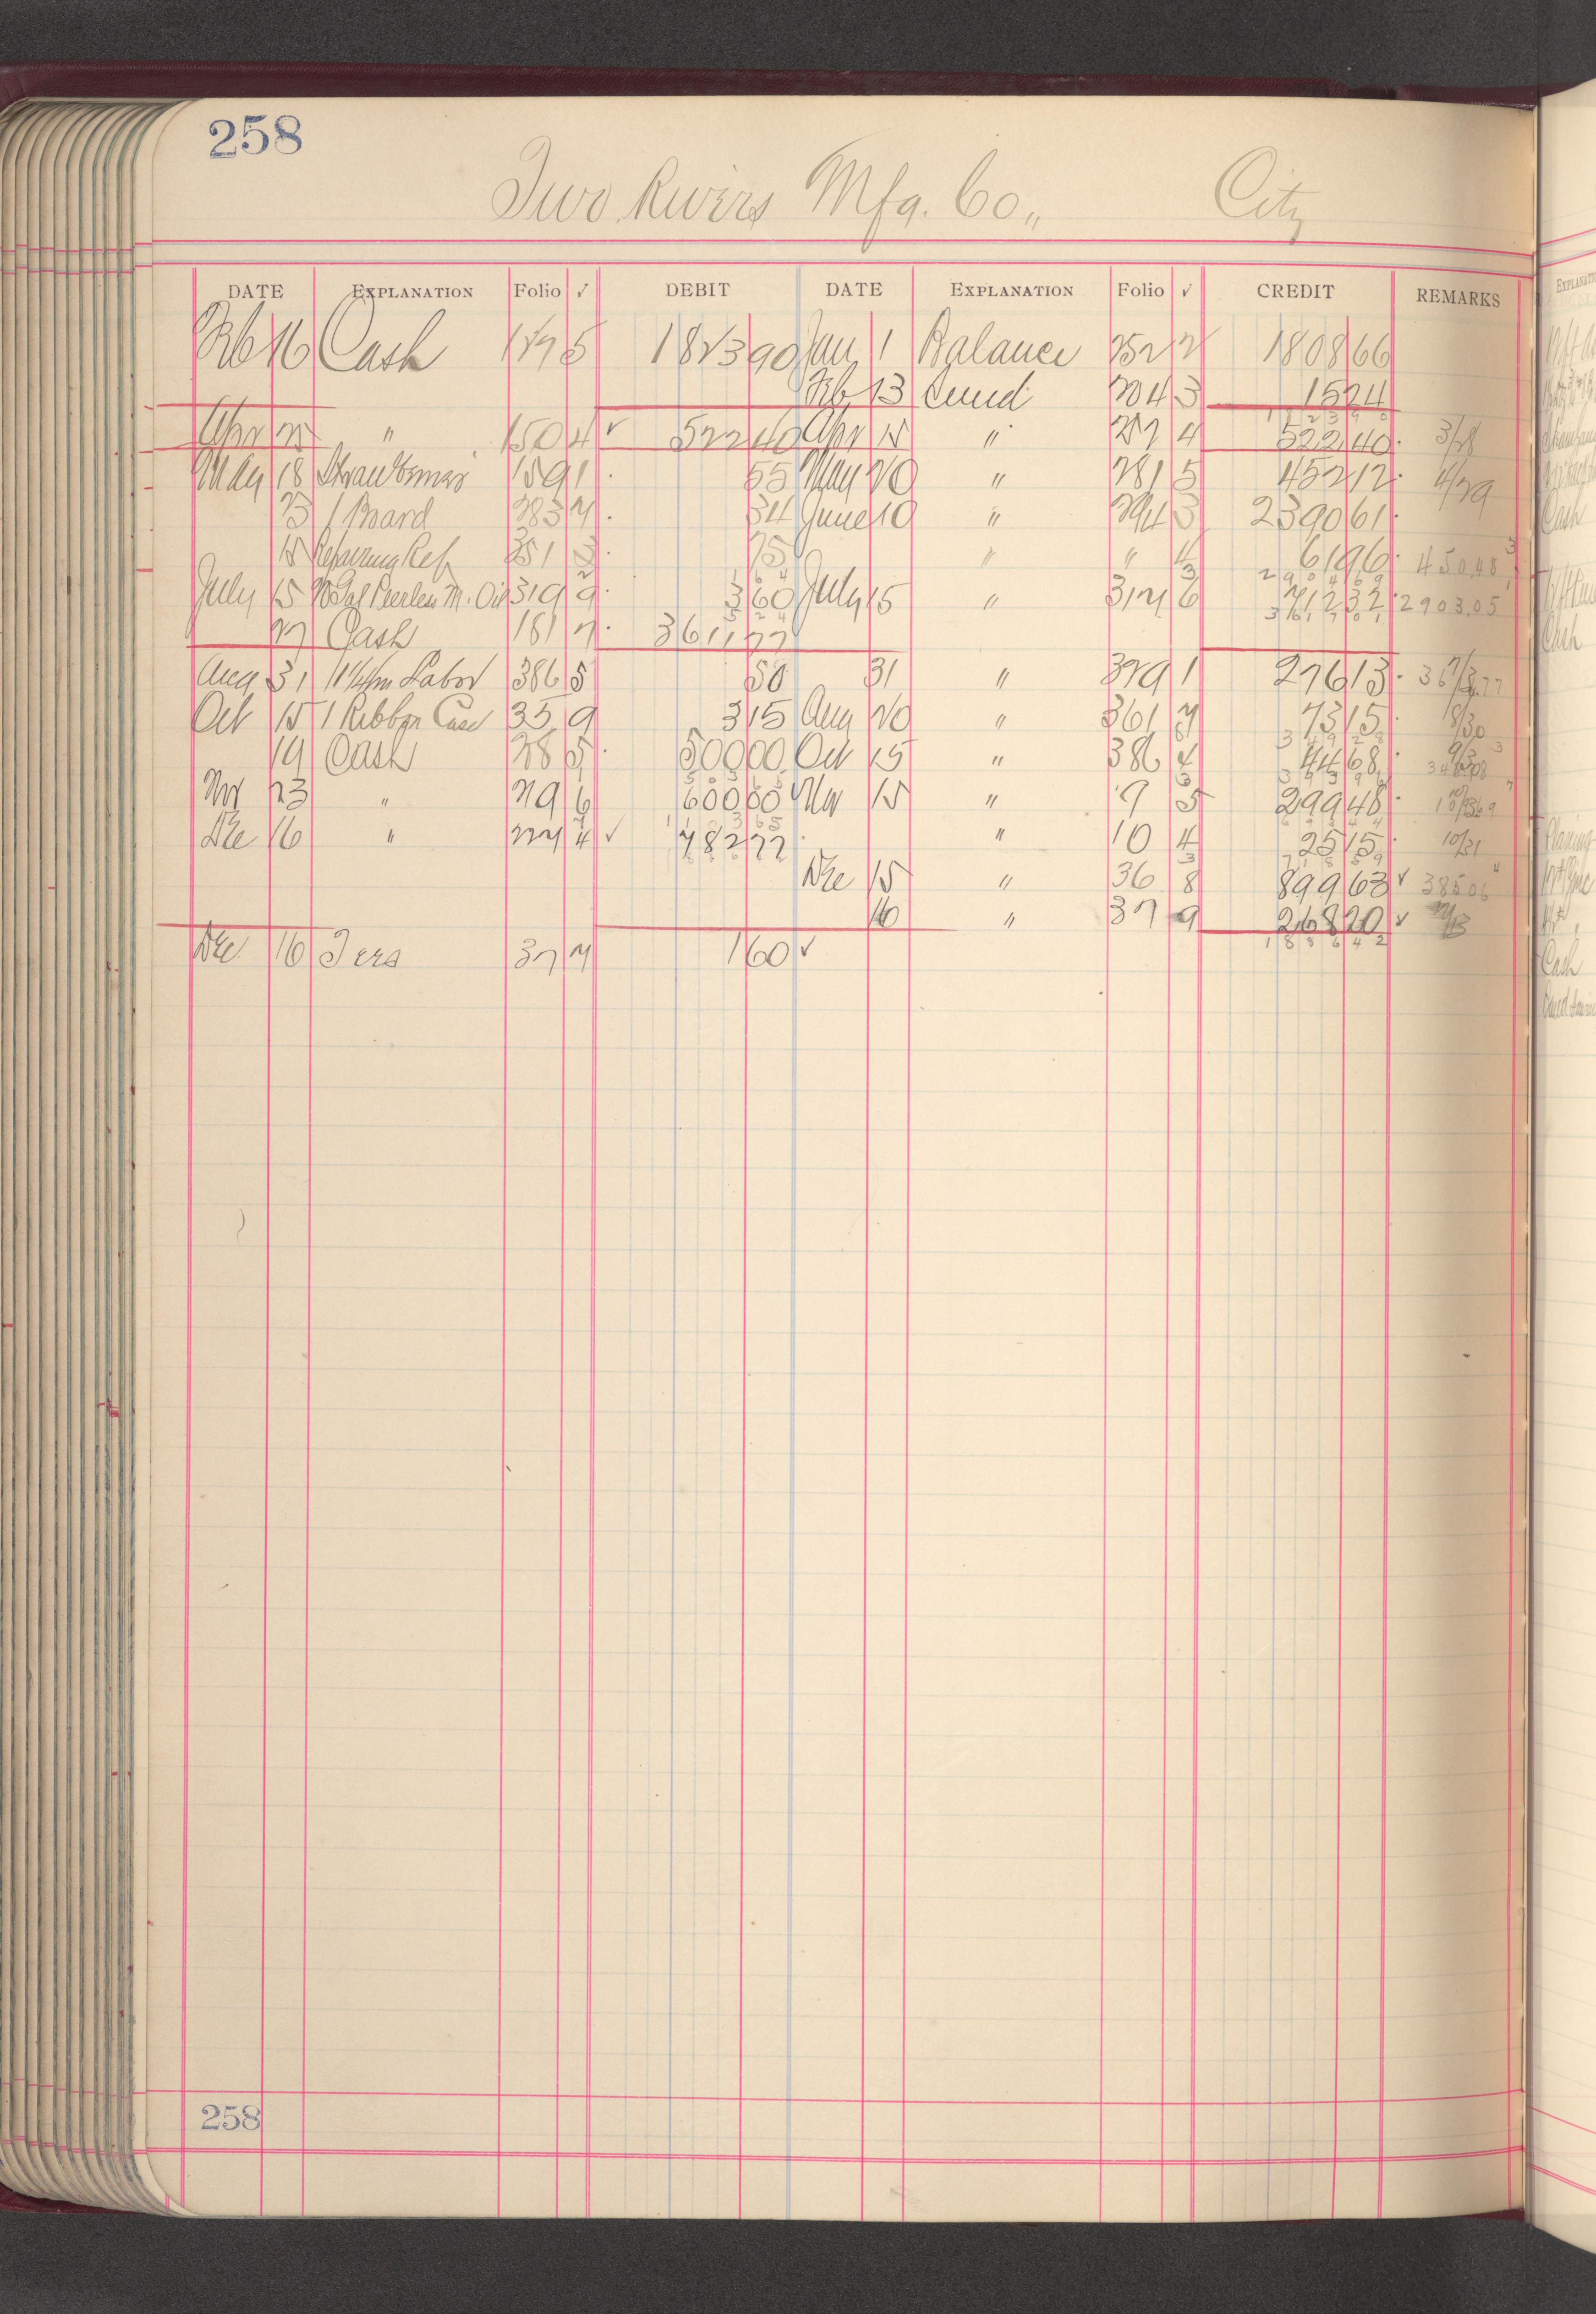 258
Two Rivers Mfg. Co., City
DATE EXPLANATION Folio √ DEBIT DATE EXPLANATION Folio √ CREDIT REMARKS
Feb 16 Cash 127 5 1823 90 Jan 1 Balance 252 2 1808 66
Feb 13 Sund 204 3 15 24
Apr 25 " 150 4 √ 522 40 Apr 15 " 227 4 522 40 3/28
May 18 Strawberries 159 1 55 May 20 " 281 5 452 12 4/29
23 1 Board 283 7 34 June 10 " 294 3 2390 61
15 Repairing Ref 251 3 75 " " 4 61 96 450.48
July 15 20 Gal Peerless M. Oil 319 9 3 60 July 15 " 312 6 712 32 2903.05
27 Cash 181 7 3611 77
Aug 31 1 1/4 hr Labor 386 5 50 31 " 329 1 276 13
Oct 15 1 Ribbon Case 35 9 3 15 Aug 20 " 361 7 73 15 8/30
19 Cash 28 5 500 00 Oct 15 " 386 4 44 68
Nov 23 " 29 6 600 00 Nov 15 " 9 5 299 48
Dec 16 " 227 4 √ 782 77 " 10 4 25 15 10/31
Dec 15 " 36 8 899 63 √ 385 06
16 " 37 9 268 20 √
Dec 16 Ters 37 7 1 60 √
258